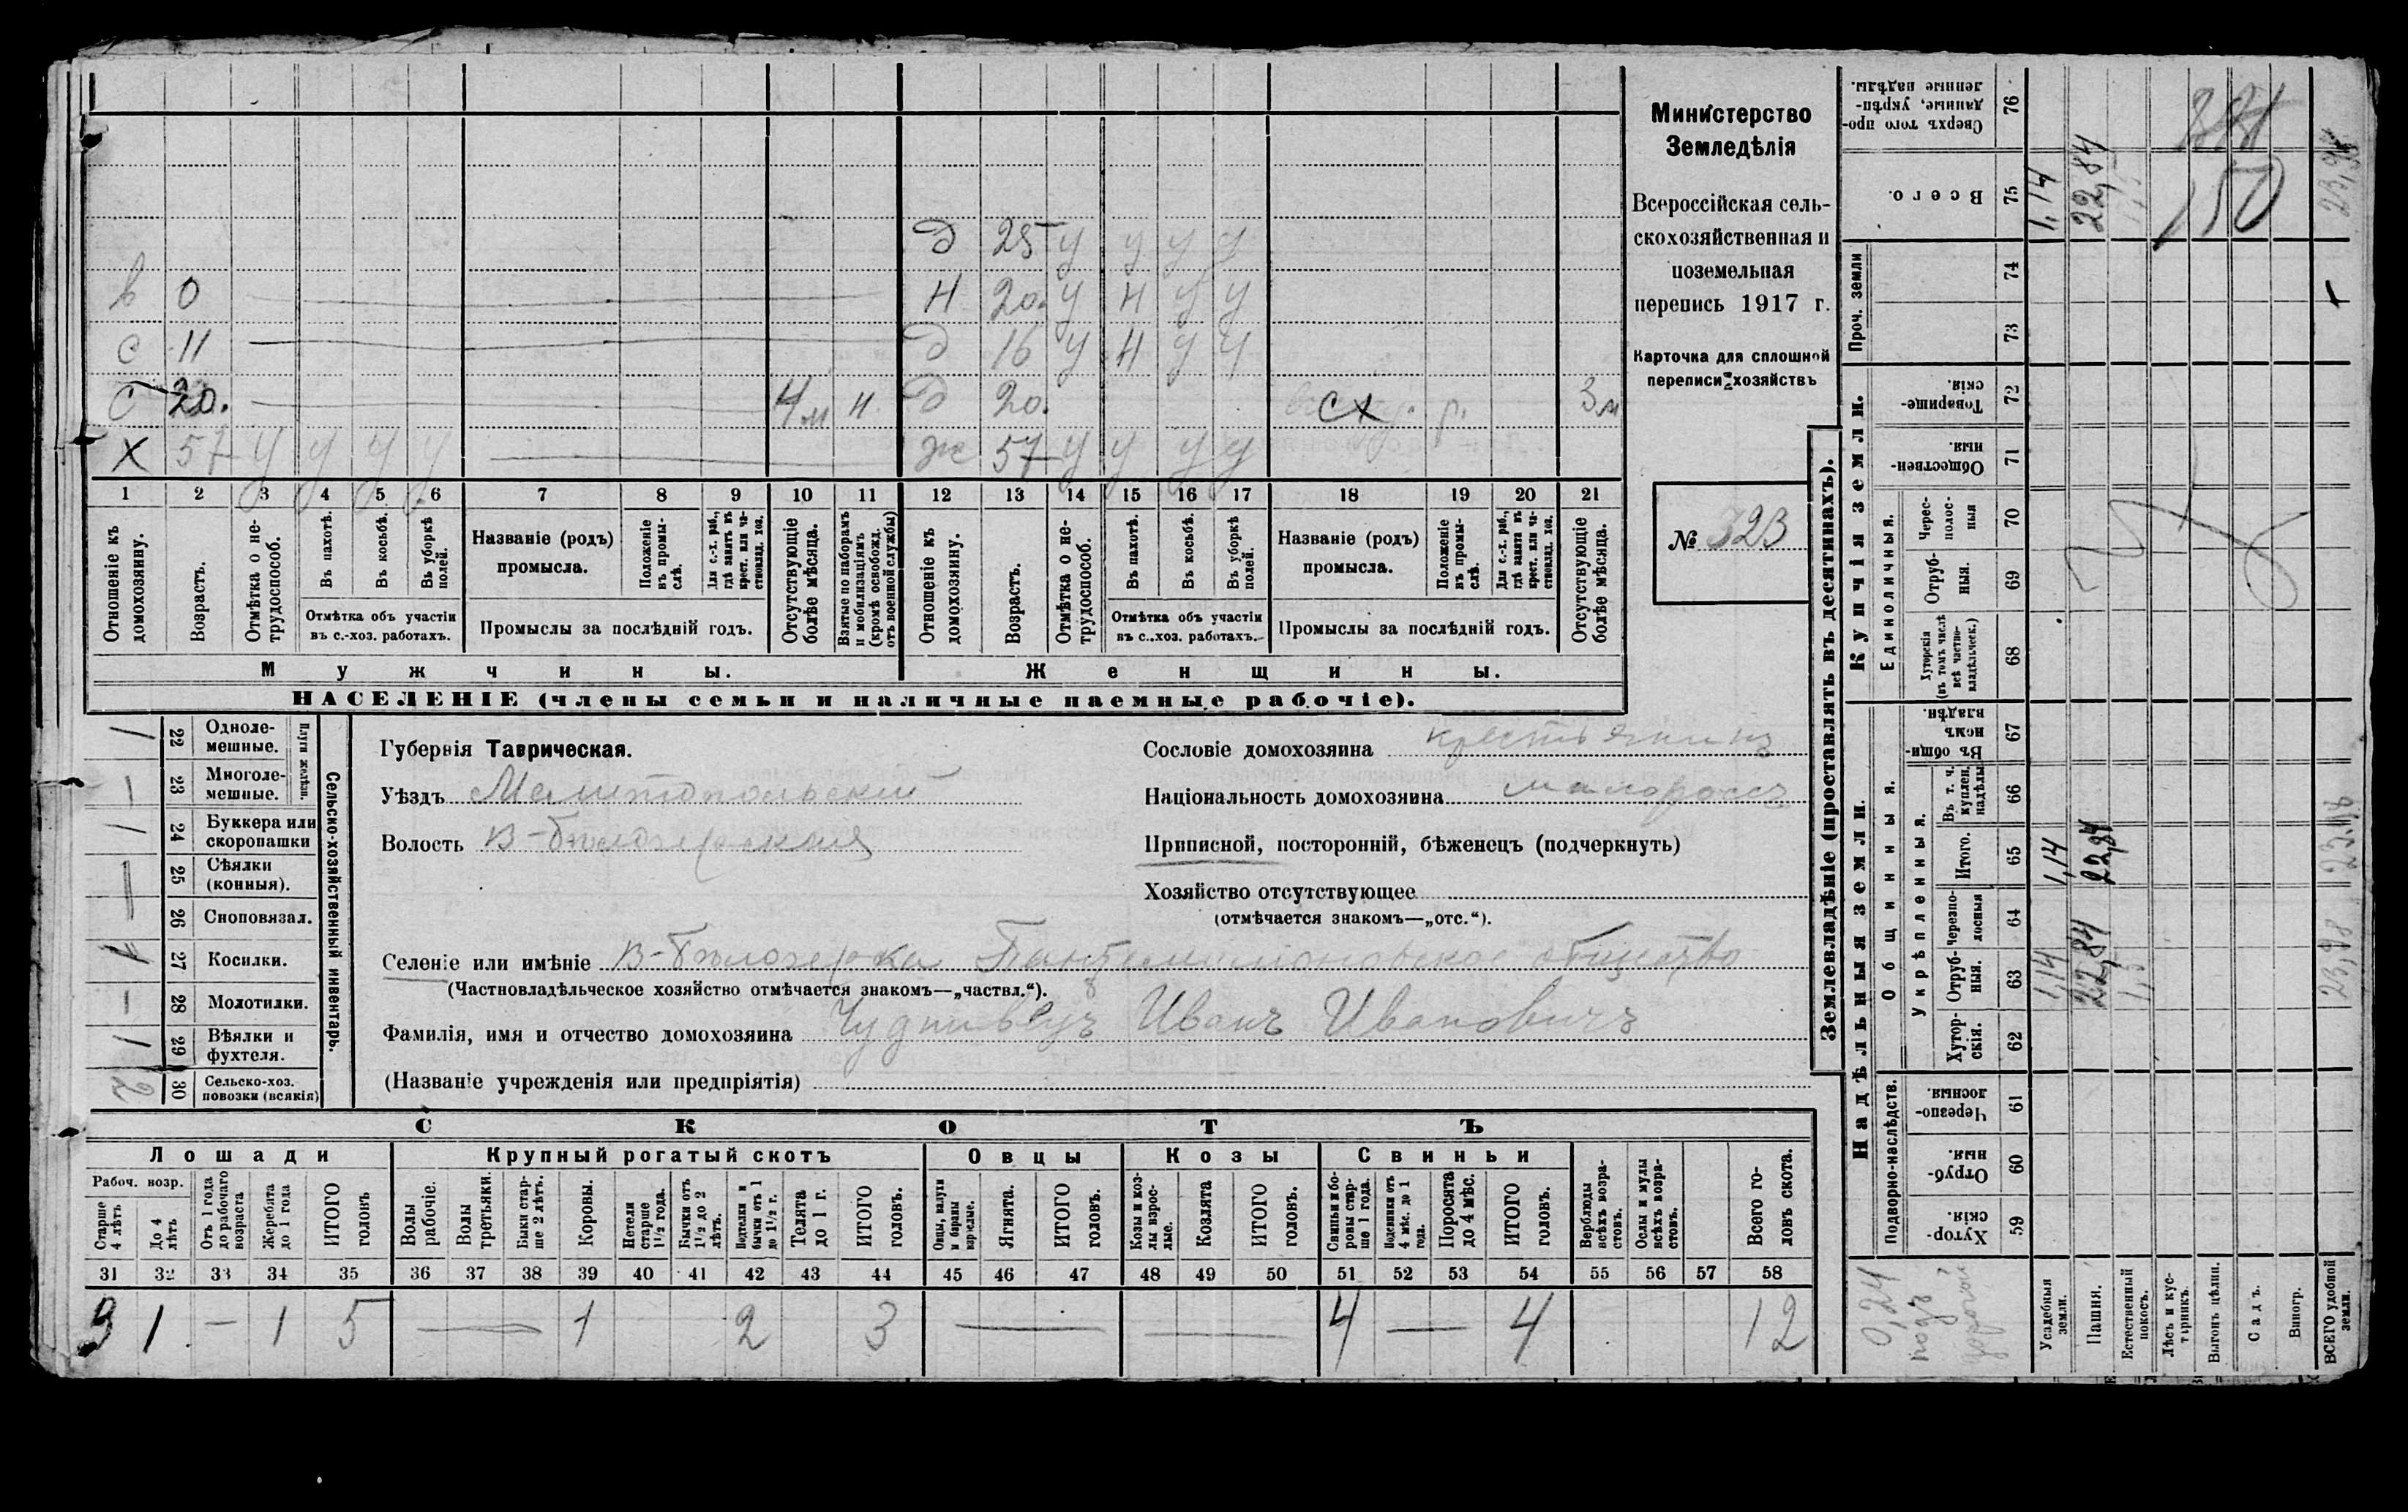 Министерство
Земледѣлія
Всероссійская сель-
скохозяйственная и
поземельная
перепись 1917 г.
Карточка для сплошной
переписи хозяйствъ
№ 323
д 25 у у у у
в 0 н 20 у н у у
с 11 д 16 у н у у
с 20. 4м н. д 20. сх р. 3м
х 57 у у у у ж 57 у у у у
1 2 3 4 5 6 7 8 9 10 11 12 13 14 15 16 17 18 19 20 21
Отношеніе къ домохозяину.
Возрастъ.
Отмѣтка о не-трудоспособ.
Въ пахотѣ.
Въ косьбѣ.
Въ уборкѣ полей.
Отмѣтка объ участіи
въ с.-хоз. работахъ.
Названіе (родъ)
промысла.
Положеніе въ промы-слѣ.
Для с.-х. раб., гдѣ занятъ въ крест. или ча-стновлад. хоз.
Промыслы за послѣдній годъ.
Отсутствующіе болѣе мѣсяца.
Взятые по наборамъ и мобилизаціямъ (кромѣ освобожд. отъ военной службы)
Отношеніе къ домохозяину.
Возрастъ.
Отмѣтка о не-трудоспособ.
Въ пахотѣ.
Въ косьбѣ.
Въ уборкѣ полей.
Отмѣтка объ участіи
въ с.-хоз. работахъ.
Названіе (родъ)
промысла.
Положеніе въ промы-слѣ.
Для с.-х. раб., гдѣ занята въ крест. или ча-стновлад. хоз.
Промыслы за послѣдній годъ.
Отсутствующіе болѣе мѣсяца.
Мужчины. Женщины.
НАСЕЛЕНІЕ (члены семьи и наличные наемные рабочіе).
Сельско-хозяйственный инвентарь.
Плуги желѣзн.
1 22 Одноле-мешные.
— 23 Многоле-мешные.
1 24 Буккера или скоропашки
— 25 Сѣялки (конныя).
26 Сноповязал.
1 27 Косилки.
— 28 Молотилки.
1 29 Вѣялки и фухтеля.
2 30 Сельско-хоз. повозки (всякія)
Губернія Таврическая.
Уѣздъ Мелитопольскій
Волость В-Бѣлозерская
Сословіе домохозяина крестьянинъ
Національность домохозяина малороссъ
Приписной, посторонній, бѣженецъ (подчеркнуть)
Хозяйство отсутствующее
(отмѣчается знакомъ—„отс.“).
Селеніе или имѣніе В-Бѣлозерка Пантелимоновское общество
(Частновладѣльческое хозяйство отмѣчается знакомъ—„частвл.“).
Фамилія, имя и отчество домохозяина Иванъ Ивановичъ
(Названіе учрежденія или предпріятія)
СКОТЪ
Лошади Крупный рогатый скотъ Овцы Козы Свиньи
Рабоч. возр.
Старше 4 лѣтъ
До 4 лѣтъ
Отъ 1 года до рабочаго возраста
Жеребята до 1 года
ИТОГО головъ
Волы рабочіе.
Волы третьяки.
Быки стар-ше 2 лѣтъ.
Коровы.
Нетели старше 1½ года.
Бычки отъ 1½ до 2 лѣтъ.
Подтелки и бычки отъ 1 до 1½ г.
Телята до 1 г.
ИТОГО головъ.
Овцы, валухи и бараны взрослые.
Ягнята.
ИТОГО головъ.
Козы и коз-лы взрос-лые.
Козлята
ИТОГО головъ.
Свиньи и бо-ровы стар-ше 1 года.
Подсвинки отъ 4 мѣс. до 1 года.
Поросята до 4 мѣс.
ИТОГО головъ.
Верблюды всѣхъ возра-стовъ.
Ослы и мулы всѣхъ возра-стовъ.
Всего го-ловъ скота.
31 32 33 34 35 36 37 38 39 40 41 42 43 44 45 46 47 48 49 50 51 52 53 54 55 56 57 58
3 1 — 1 5 — 1 2 3 — — 4 — 4 12
Землевладѣніе (проставлять въ десятинахъ).
Купчія земли.
Надѣльныя земли.
Проч. земли
Единоличныя.
Общинныя.
Укрѣпленныя.
Подворно-наслѣдств.
Сверхъ того про-данные, укрѣп-ленные надѣлы. 76
Всего. 75 1,14 22,84
150
74
73
Товарище-скія. 72
Обществен-ныя. 71
Черес-полос-ныя 70
Отруб-ныя. 69
Хуторскія (въ томъ числѣ всѣ частно-владѣльческ.) 68
Въ общин-номъ владѣн. 67
Въ т. ч. куплен. надѣлы 66
Итого. 65 1,14 22,84
Черезпо-лосныя 64
Отруб-ныя. 63 1,14 22,84 23,98
Хутор-скія. 62
Черезпо-лосныя 61
Отруб-ныя. 60
Хутор-скія. 59
0,24
подъ
дорогой
Усадебныя земли.
Пашня.
Естественный покосъ.
Лѣсъ и кус-тарникъ.
Выгонъ цѣлин.
Садъ.
Виногр.
ВСЕГО удобной земли.